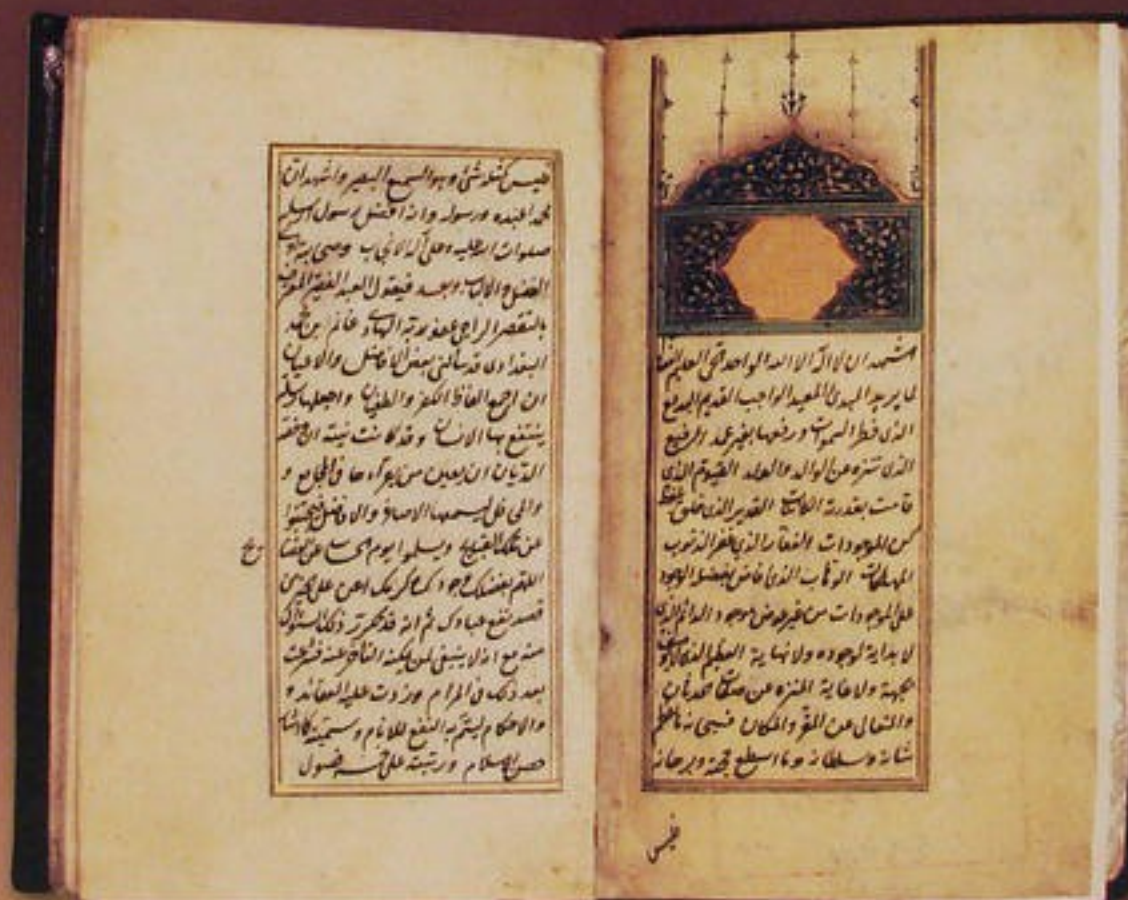 اشهد ان لا اله الا الله الواحد الحى العليم
لما يريد المبدئ المعيد الواجب القديم البديع
الذى فطر السموات ورفعها بغير عمد الرفيع
الذى تنزه عن الوالد والولد القيوم الذى
قامت بقدرته الكائنات القدير الذى خلق
الموجودات الغفار الذى غفر الذنوب
المهلكات الوهاب الذى فاض بفضل الوجود
على الموجودات من غير عوض موجود الدائم الذى
لا بداية لوجوده ولا نهاية العظيم الذى
بجهة ولا غاية المنزه عن
والمتعال عن المقر والمكان فسبحانه ما اعظم
شانه وسلطانه وما اسطع حجته وبرهانه
فليس
فليس كمثله شئ وهو السميع البصير واشهد ان
محمدا عبده ورسوله وانه افضل رسول ارسله
صلوات الله عليه وعلى آله الانجاب وصحبه
الفضل والالباب وبعد فيقول العبد الفقير المعترف
بالتقصير الراجى عفو ربه الهادى غانم ابن محمد
البغدادى قد سألنى بعض الافاضل والاعيان
ان اجمع الفاظ الكفر والطغيان واجعلها
ينتفع بها الانسان وقد كانت نيته ان وفقه
الديان ان يعين من يقرأها فى المجامع و
والمحافل ليسمعها الاصاغر والافاضل فيجتنبوا
عن تلك القبايح ويسلموا يوم عن
اللهم بفضلك وجودك وكرمك اعن على
قصد نفع عبادك ثم انه قد تكرر ذلك
منه مع انه لا ينبغى لمن يمكنه التأخر عنه فشرعت
بعد ذلك فى المرام وزدت عليه العقائد و
والاحكام ليتم به النفع للانام وسميته
حصن الاسلام ورتبته على خمسة فصول